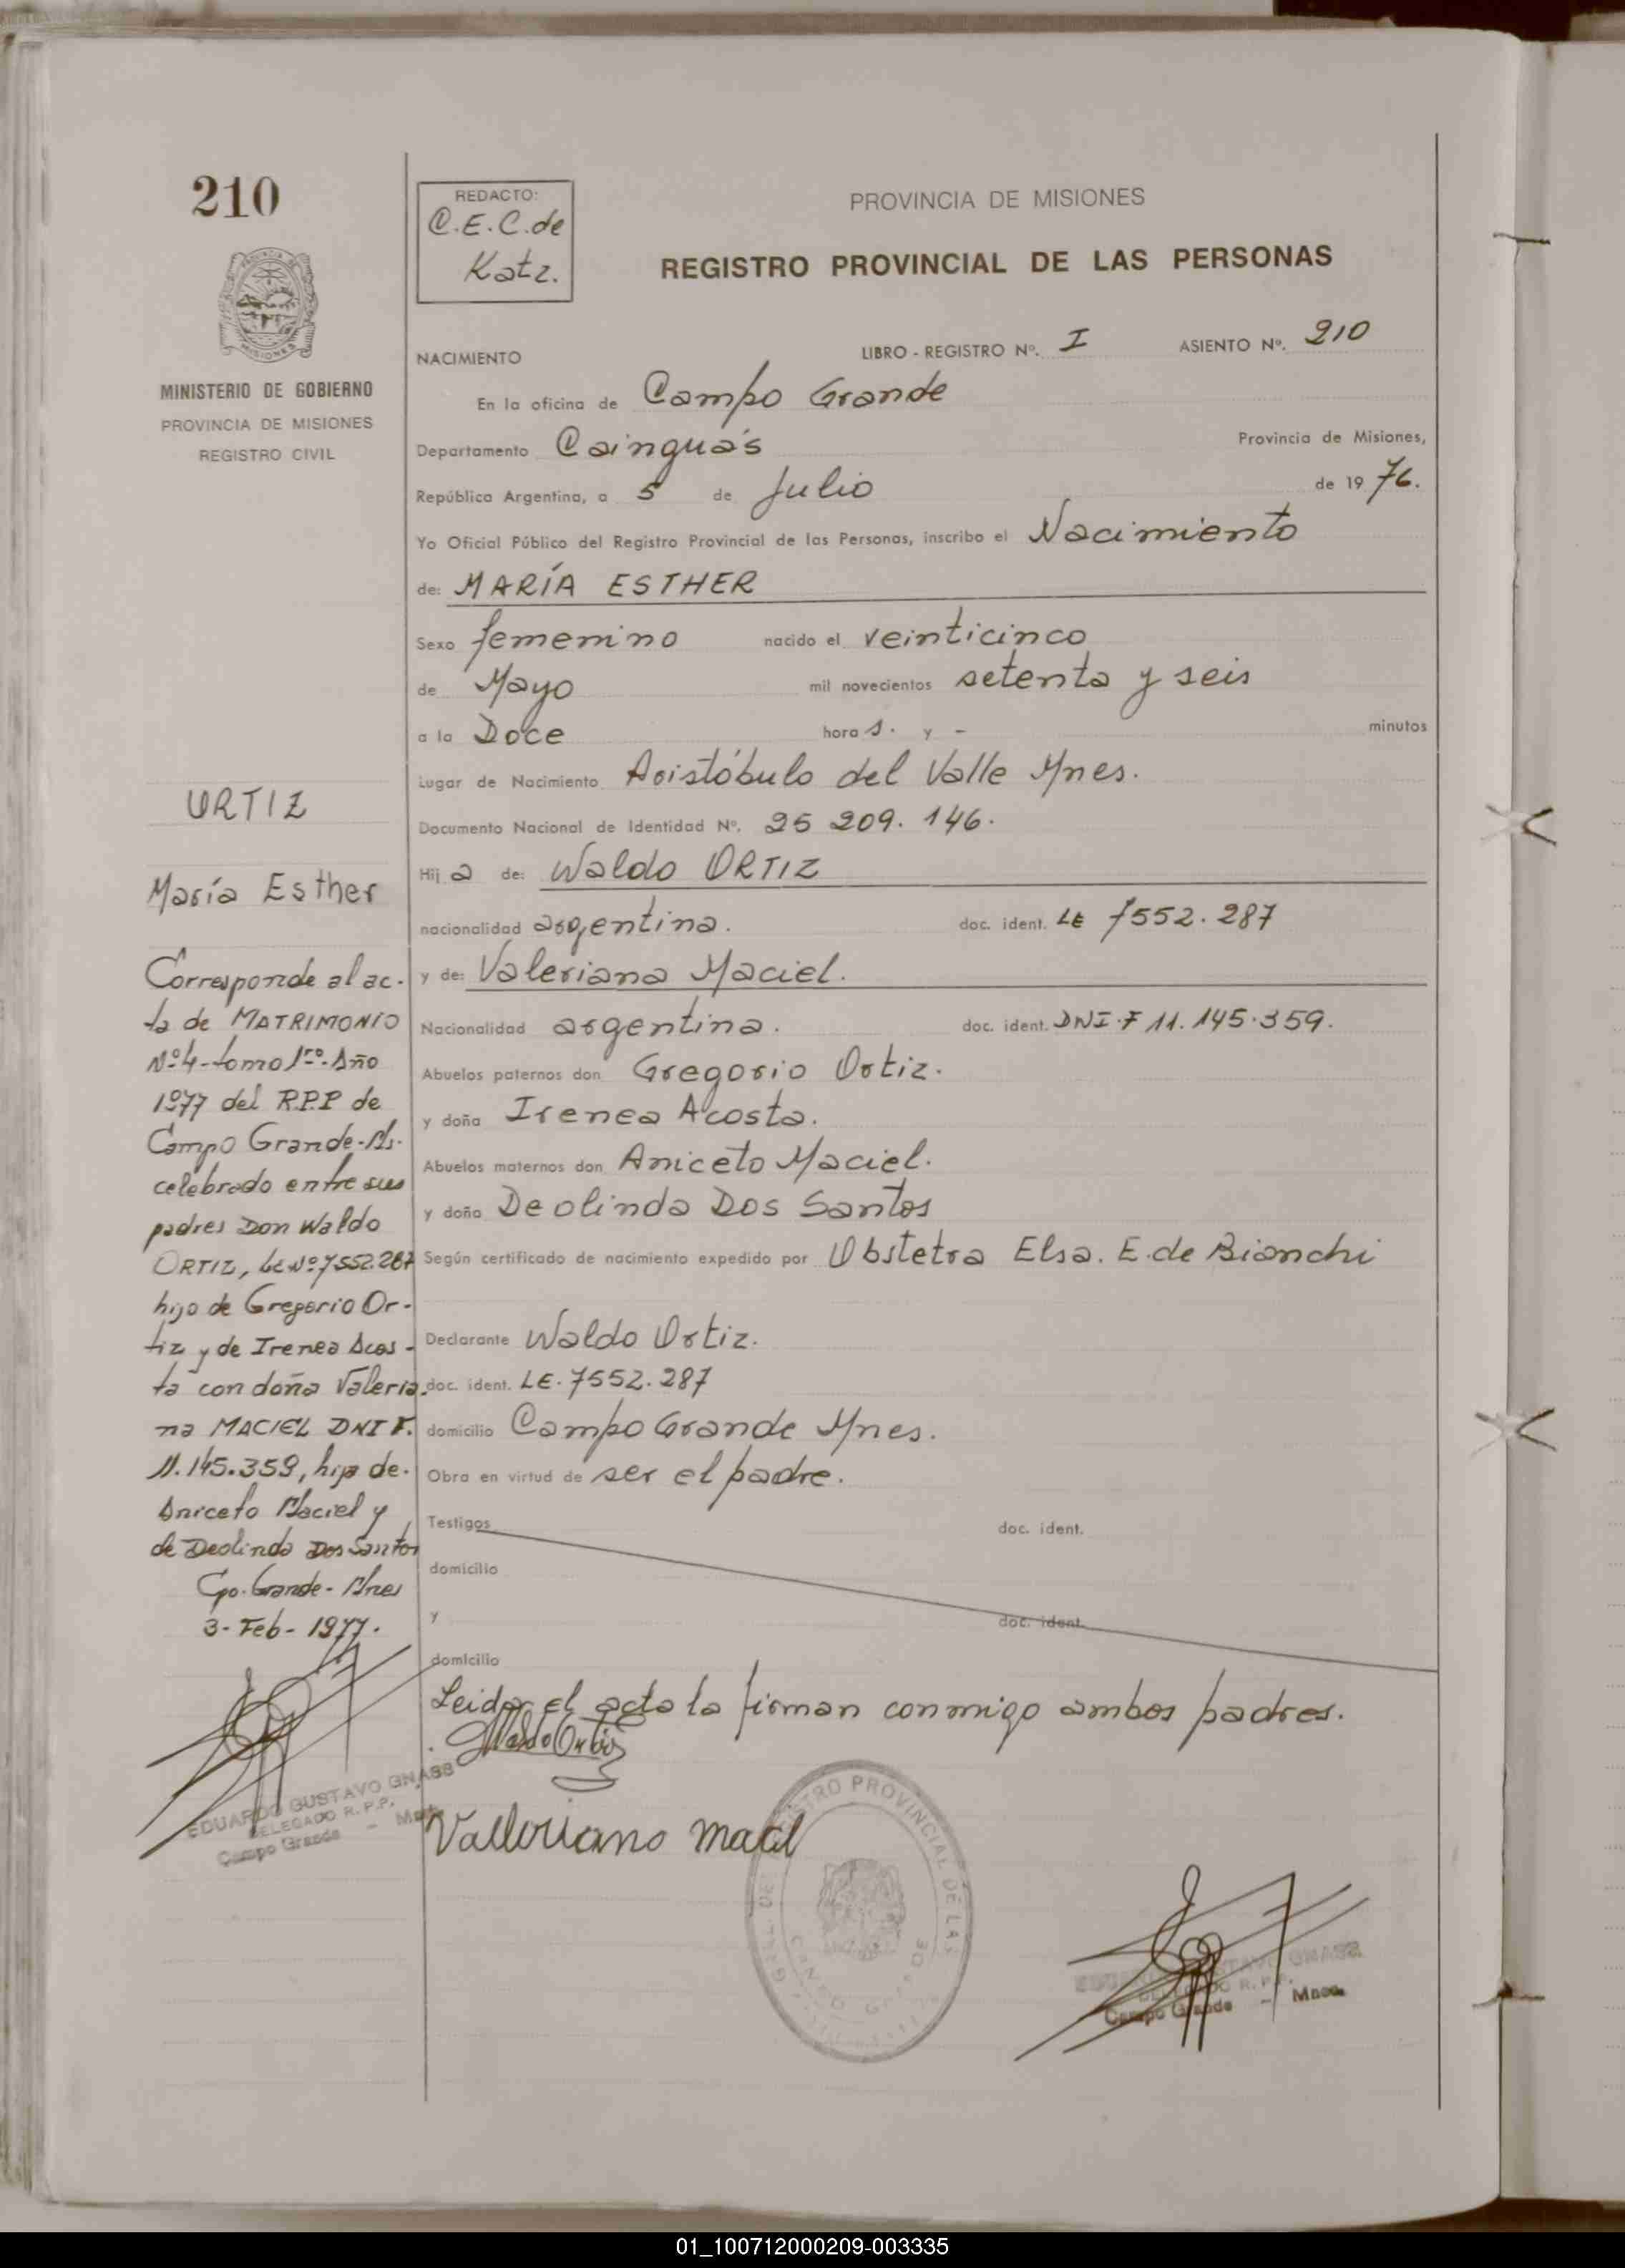 210
PROVINCIA DE
MISIONES
MINISTERIO DE GOBIERNO
PROVINCIA DE MISIONES
REGISTRO CIVIL
URTIZ
María Esther
Corresponde al ac-
ta de MATRIMONIO
Nº4-tomo 1ro-Año
1977 del R.P.P de
Campo Grande-Ms.
celebrado entre sus
padres Don Waldo
ORTIZ, LE Nº 7.552.287
hijo de Gregorio Or-
tiz y de Irenea Acos-
ta con doña Valeria-
na MACIEL DNI F.
11.145.359, hija de.
Aniceto Maciel y
de Deolinda Dos Santos
Cpo. Grande- Mnes
3- Feb- 1977.
EDUARDO GUSTAVO GNASS
DELEGADO R. P.P.
Campo Grande - Mnes.
REDACTO:
C.E.C. de
Katz.
PROVINCIA DE MISIONES
REGISTRO PROVINCIAL DE LAS PERSONAS
NACIMIENTO LIBRO - REGISTRO Nº. I ASIENTO Nº. 210
En la oficina de Campo Grande
Departamento Cainguás Provincia de Misiones,
República Argentina, a 5 de Julio de 19 76.
Yo Oficial Público del Registro Provincial de las Personas, inscribo el Nacimiento
de: MARÍA ESTHER
Sexo femenino nacido el veinticinco
de Mayo mil novecientos setenta y seis
a la Doce hora s. y - minutos
Lugar de Nacimiento Aristóbulo del Valle Mnes.
Documento Nacional de Identidad Nº. 25 209. 146.
Hij a de: Waldo ORTIZ
nacionalidad argentina. doc. ident. LE 7552. 287
y de: Valeriana Maciel.
Nacionalidad argentina. doc. ident. DNI. F 11. 145. 359.
Abuelos paternos don Gregorio Ortiz.
y doña Irenea Acosta.
Abuelos maternos don Aniceto Maciel.
y doña Deolinda Dos Santos
Según certificado de nacimiento expedido por Obstetra Elsa. E. de Bianchi
Declarante Waldo Ortiz.
doc. ident. LE. 7552. 287
domicilio Campo Grande Mnes.
Obra en virtud de ser el padre.
Testigos doc. ident.
domicilio
y doc. ident.
domicilio
Leida el acta la firman conmigo ambos padres.
Waldo Ortiz
Valleriano macil
REGISTRO PROVINCIAL DE LAS
CAMPO GRANDE
EDUARDO GUSTAVO GNASS
DELEGADO R. P.P.
Campo Grande - Mnes.
01_100712000209-003335